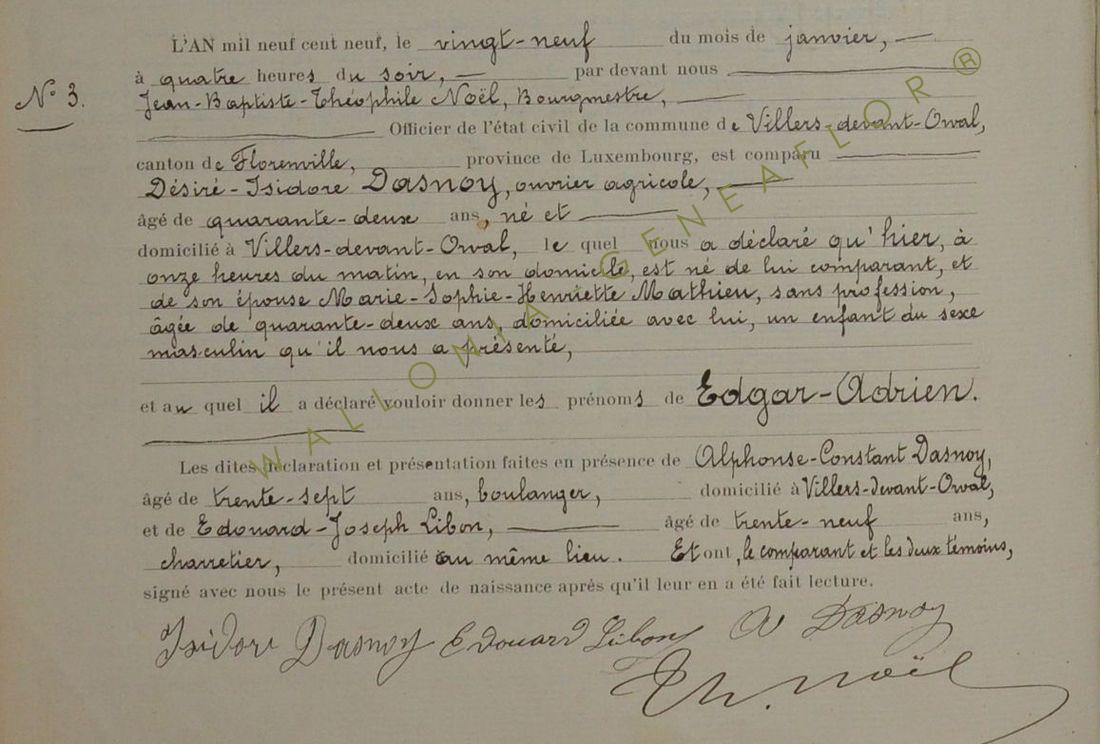 L'AN mil neuf cent neuf, le vingt-neuf du mois de janvier,
à quatre heures du soir, par devant nous
N° 3.
Jean-Baptiste-Théophile Noël, Bourgmestre,
Officier de l'état civil de la commune de Villers-devant-Orval,
canton de Florenville, province de Luxembourg, est comparu
Désiré-Isidore Dasnoy, ouvrier agricole,
âgé de quarante-deux ans, né et
domicilié à Villers-devant-Orval, le quel nous a déclaré qu'hier, à
onze heures du matin, en son domicile, est né de lui comparant, et
de son épouse Marie-Sophie-Henriette Mathieu, sans profession,
âgée de quarante-deux ans, domiciliée avec lui, un enfant du sexe
masculin qu'il nous a présenté,
et au quel il a déclaré vouloir donner les prénoms de Edgar-Adrien.
Les dites déclaration et présentation faites en présence de Alphonse-Constant Dasnoy,
âgé de trente-sept ans, boulanger, domicilié à Villers-devant-Orval,
et de Edouard-Joseph Libon, âgé de trente-neuf ans,
charretier, domicilié au même lieu. Et ont, le comparant et les deux témoins,
signé avec nous le présent acte de naissance après qu'il leur en a été fait lecture.
Isidore Dasnoy Edouard Libon A Dasnoy
Th. Noël
WALLONIA-GENEAFLOR ®